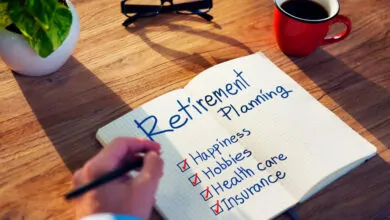 Retirement
Planning
Happiness
Hobbies
Health care
Insurance